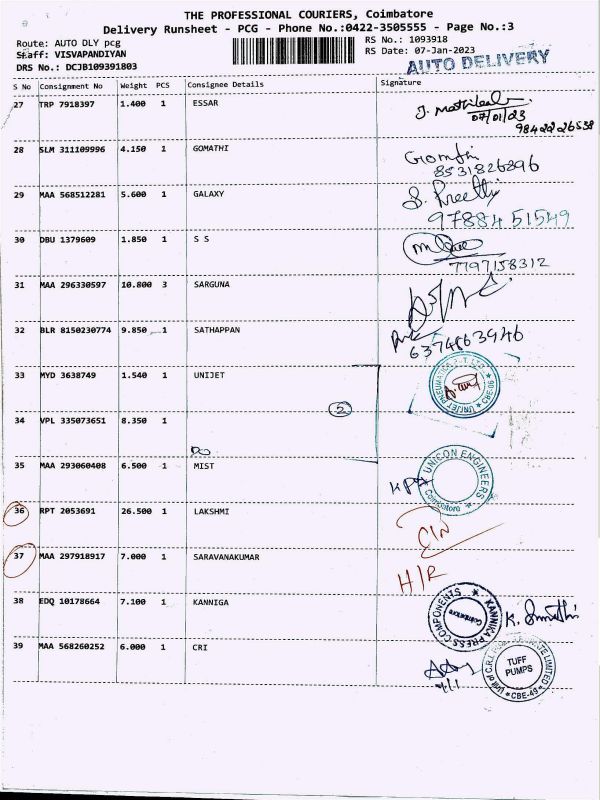 THE PROFESSIONAL COURIERS, Coimbatore
Delivery Runsheet - PCG - Phone No.:0422-3505555 - Page No.:3
Route: AUTO DLY pcg
RS No.: 1093918
Staff: VISVAPANDIYAN
RS Date: 07-Jan-2023
DRS No.: DCJB109391803
AUTO DELIVERY
S No Consignment No Weight PCS Consignee Details Signature
27 TRP 7918397 1.400 1 ESSAR
07/01/23
9842226538
28 SLM 311109996 4.150 1 GOMATHI
8531826896
29 MAA 568512281 5.600 1 GALAXY
9788451549
30 DBU 1379609 1.850 1 S S
7797158312
31 MAA 296330597 10.800 3 SARGUNA
32 BLR 8150230774 9.850 1 SATHAPPAN
6374863946
33 MYD 3638749 1.540 1 UNIJET
UNIJET PNEUMATICS P. LTD. CBE-06
2
34 VPL 335073651 8.350 1
Do
35 MAA 293060408 6.500 1 MIST
UNICON ENGINEERS Coimbatore
36 RPT 2053691 26.500 1 LAKSHMI
C/N
37 MAA 297918917 7.000 1 SARAVANAKUMAR
H/R
38 EDQ 10178664 7.100 1 KANNIGA
KANNIKA PRESS COMPONENTS Coimbatore
39 MAA 568260252 6.000 1 CRI
TUFF PUMPS
CBE-49